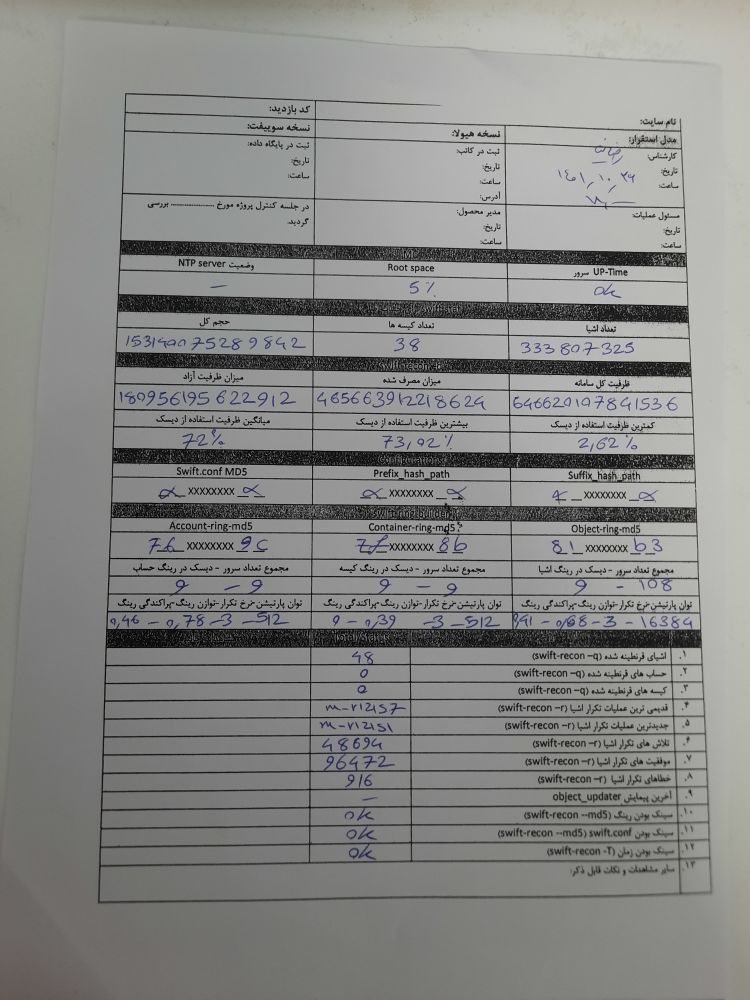 نام سایت:
کد بازدید:
مدل استقرار:
نسخه هیولا:
نسخه سوییفت:
کارشناس:
تاریخ: ۱۴۰۱/۱۰/۲۶
ساعت:
ثبت در کاتب:
تاریخ:
ساعت:
آدرس:
ثبت در پایگاه داده:
تاریخ:
ساعت:
مسئول عملیات:
تاریخ:
ساعت:
مدیر محصول:
تاریخ:
ساعت:
در جلسه کنترل پروژه مورخ .................. بررسی
گردید.
UP-Time سرور
Root space
وضعیت NTP server
ok
5%
—
تعداد اشیا
تعداد کیسه ها
حجم کل
333807325
38
swift-recon -d
ظرفیت کل سامانه
میزان مصرف شده
میزان ظرفیت آزاد
646620107841536
465663912218624
180956195622912
کمترین ظرفیت استفاده از دیسک
بیشترین ظرفیت استفاده از دیسک
میانگین ظرفیت استفاده از دیسک
2,62%
73,02%
72%
Suffix_hash_path
Prefix_hash_path
Swift.conf MD5
xxxxxxxx
xxxxxxxx
xxxxxxxx
Object-ring-md5
Container-ring-md5
Account-ring-md5
81 xxxxxxxx b3
xxxxxxxx 8b
xxxxxxxx 9c
مجموع تعداد سرور - دیسک در رینگ اشیا
مجموع تعداد سرور - دیسک در رینگ کیسه
مجموع تعداد سرور - دیسک در رینگ حساب
9 - 108
9 - 9
9 - 9
توان پارتیشن-نرخ تکرار-توازن رینگ-پراکندگی رینگ
توان پارتیشن-نرخ تکرار-توازن رینگ-پراکندگی رینگ
توان پارتیشن-نرخ تکرار-توازن رینگ-پراکندگی رینگ
0,68 - 3 - 16384
0 - 0,39 - 3 - 512
0,46 - 0,78 - 3 - 512
۱. اشیای قرنطینه شده (swift-recon –q) 48
۲. حساب های قرنطینه شده (swift-recon –q) 0
۳. کیسه های قرنطینه شده (swift-recon –q) 0
۴. قدیمی ترین عملیات تکرار اشیا (swift-recon –r)
۵. جدیدترین عملیات تکرار اشیا (swift-recon –r)
۶. تلاش های تکرار اشیا (swift-recon –r) 48694
۷. موفقیت های تکرار اشیا (swift-recon –r) 96472
۸. خطاهای تکرار اشیا (swift-recon –r) 916
۹. آخرین پیمایش object_updater —
۱۰. سینک بودن رینگ (swift-recon --md5) ok
۱۱. سینک بودن swift.conf (swift-recon --md5) ok
۱۲. سینک بودن زمان (swift-recon -T) ok
۱۳. سایر مشاهدات و نکات قابل ذکر: